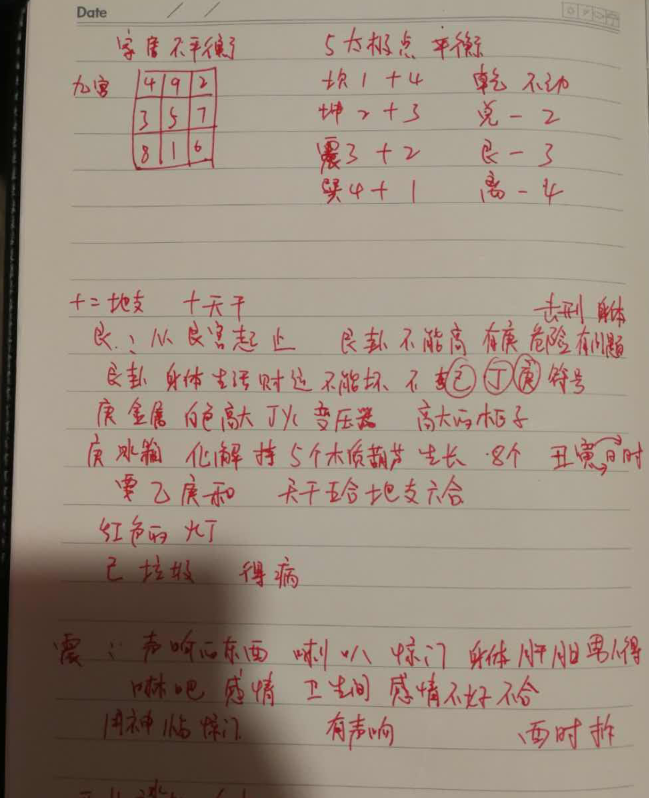 Date
字 不平衡 5大极点 平衡
九宫 4 9 2 坎1+4 乾 不动
3 5 7 坤2+3 兑-2
8 1 6 震3+2 艮-3
巽4+1 离-4
十二地支 十天干 击刑 身体
艮:从艮宫起止 艮卦不能高 有庚危险有问题
艮卦 身体生活财运 不能坏 不 己 丁 庚 符号
庚金属 白色高大 丁火 变压器 高大的柜子
庚冰箱 化解 挂5个木质葫芦 生长 8个 丑寅日时
要乙庚和 天干五合 地支六合
红色的 火丁
己垃圾 得病
震:声响的东西 喇叭 惊门 身体 肝胆 得
感情 卫生间 感情不好不合
用神临惊门 有声响 酉时拆